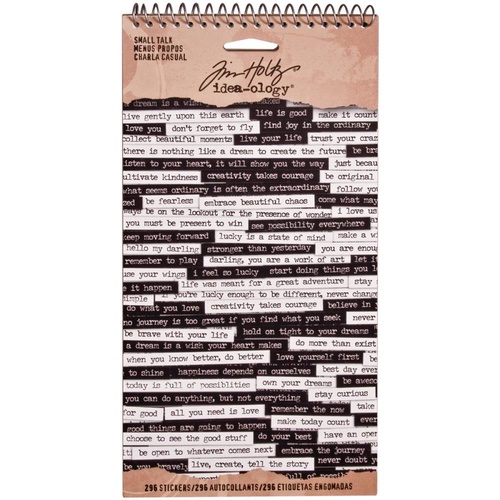 SMALL TALK
MENUS PROPOS
CHARLA CASUAL
Tim Holtz
idea-ology®
dream is a wish
live gently upon this earth life is good make it count
love you don't forget to fly find joy in the ordinary
collect beautiful moments live your life trust your craz
there is nothing like a dream to create the future be bra
listen to your heart, it will show you the way just becau
cultivate kindness creativity takes courage be original
what seems ordinary is often the extraordinary follow you
be fearless embrace beautiful chaos come what may
ways be on the lookout for the presence of wonder i love us
you must be present to win see possibility everywhere
keep moving forward lucky is a state of mind make a
hello my darling stronger than yesterday you are enoug
remember to play darling, you are a work of art let it
use your wings i feel so lucky start doing things you lo
e it happen life was meant for a great adventure stay
simple if you're lucky enough to be different, never chang
do what you love creativity takes courage believe in
no journey is too great if you find what you seek never
be brave with your life hold on tight to your dreams
a dream is a wish your heart makes do more than exist
when you know better, do better love yourself first be
to shine happiness depends on ourselves best day ever
today is full of possiblities own your dream be aweso
you can do anything, but not everything stay curious
for good all you need is love remember the now take
good things are going to happen make today count fo
choose to see the good stuff do your best have an
be open to whatever comes next embrace the journey
be you, bravely live, create, tell the story never doubt yo
296 STICKERS/296 AUTOCOLLANTS/296 ETIQUETAS ENGOMADAS